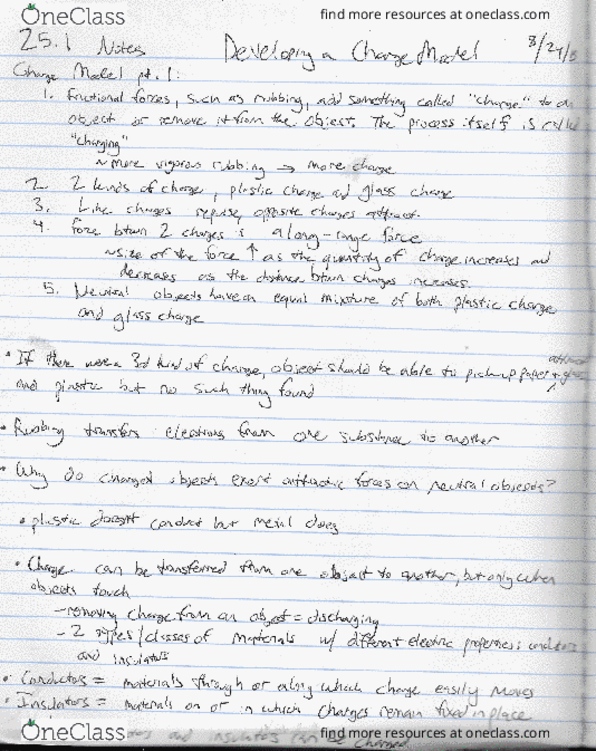 OneClass
find more resources at oneclass.com
25.1 Notes Developing a Charge Model 8/24/
Charge Model pt. 1:
1. Frictional forces, such as rubbing, add something called "charge" to an
object or remove it from the object. The process itself is called
"charging"
~ more vigorous rubbing → more charge
2. 2 kinds of charge, plastic charge and glass charge
3. Like charges repulse, opposite charges attract.
4. Force btwn 2 charges is a long-range force
~ size of the force ↑ as the quantity of charge increases and
decreases as the distance btwn charges increases.
5. Neutral objects have an equal mixture of both plastic charge
and glass charge
• If there were a 3rd kind of charge, object should be able to pickup paper +
and plastic but no such thing found
• Rubbing transfers electrons from one substance to another
• Why do charged objects exert attractive forces on neutral objects?
• plastic doesn't conduct but metal does
• Charge can be transferred from one object to another, but only when
objects touch
- removing charge from an object = discharging
- 2 types/classes of materials w/ different electric properties: conductors
and insulators
• Conductors = materials through or along which charge easily moves
• Insulators = materials on or in which charges remain fixed in place
and insulators can be charged
OneClass
find more resources at oneclass.com